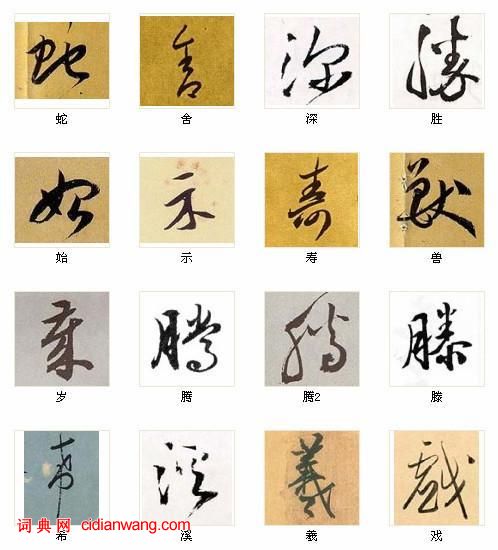 蛇 舍 深 胜
始 示 寿 兽
岁 腾 腾2 滕
希 溪 羲 戏
词典网 cidianwang.com